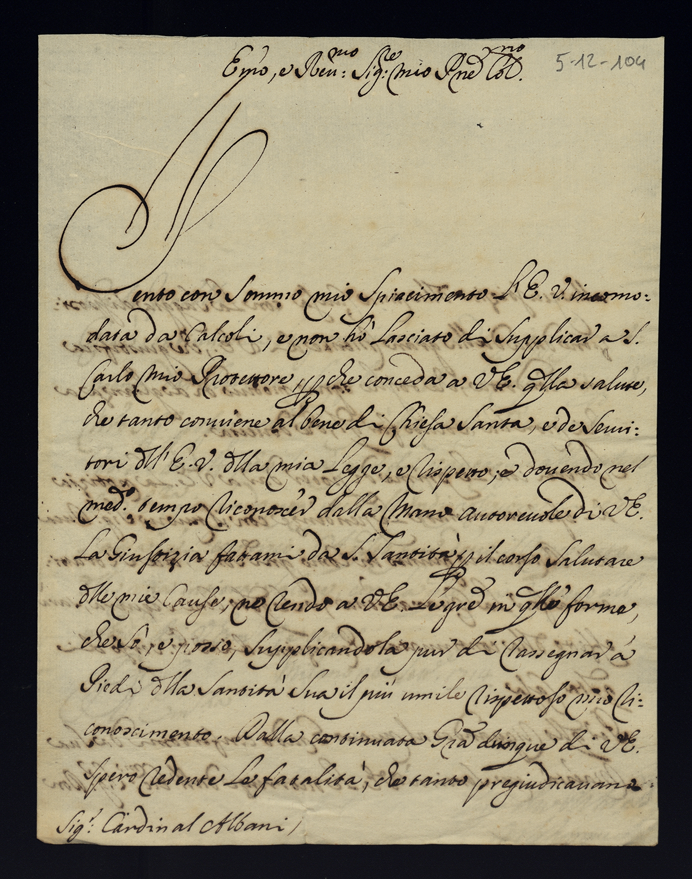 Em̃o, e Reu:mo Sig:re mio Pñe Col.mo
5-12-104
Sento con Sommo mio Spiacimento L'E. V. incomo=
data da Calcoli, e non hò Lasciato di Supplicar a S.
Carlo mio Protettore, pche conceda a V.E. qlla salute,
che tanto conviene al bene di Chiesa Santa, e de Servi=
tori dll' E. V. dlla mia Legge, e rispetto; e dovendo nel
med.o tempo riconoscer dalla Mano autorevole di V.E.
La Giustizia fatami da S. Santità p il corso Salutare
dlle mie Cause, ne rendo a V.E. Le grẽ in qlle forme,
che sò, e posso, Supplicandola pur di rassegnar à
Piedi dlla Santità Sua il più umile rispettoso mio ri=
conoscimento. Dalla continuata Grã dunque di V.E.
Spero redente Le fatalità, che tanto pregiudicavano
Sig.r Cardinal Albani